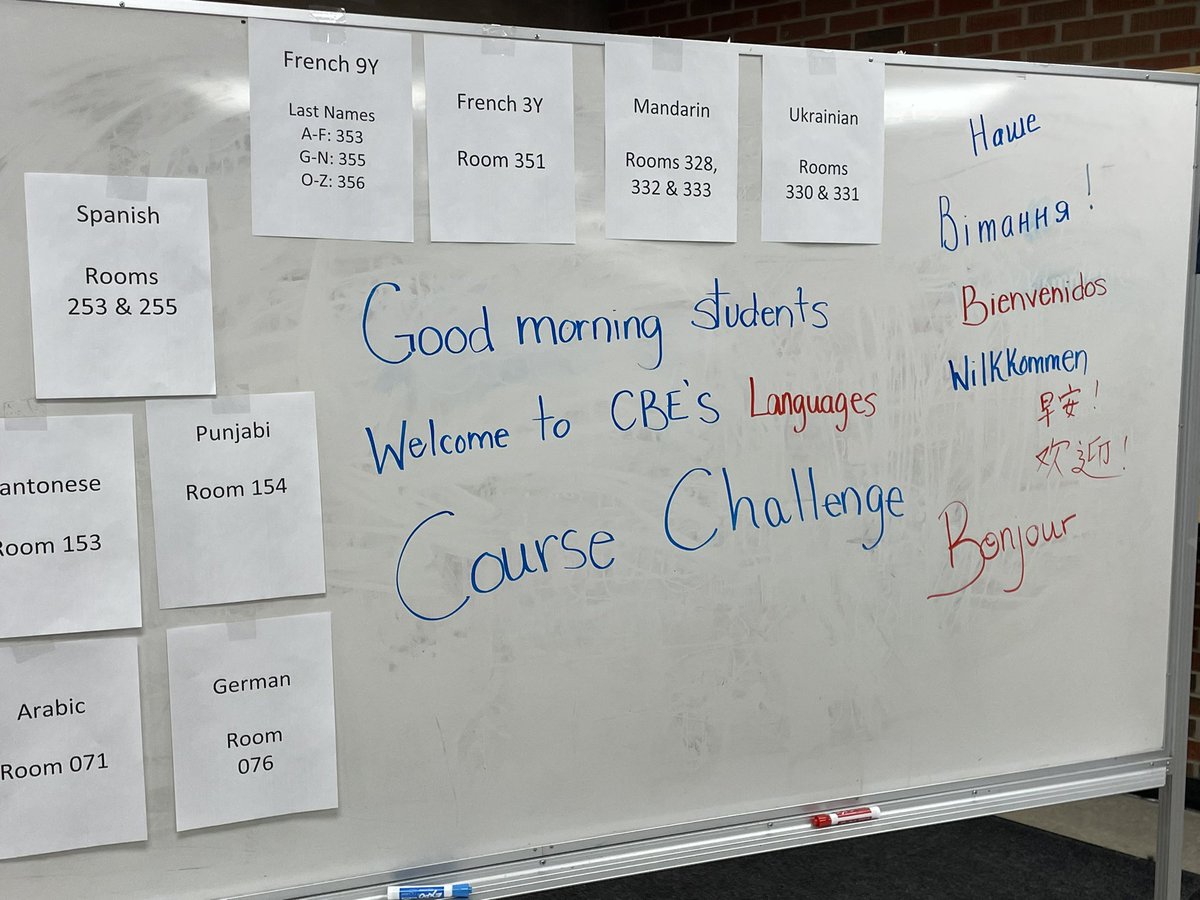 French 9Y
Last Names
A-F: 353
G-N: 355
O-Z: 356
French 3Y
Room 351
Mandarin
Rooms 328,
332 & 333
Ukrainian
Rooms
330 & 331
Spanish
Rooms
253 & 255
antonese
Room 153
Punjabi
Room 154
Arabic
Room 071
German
Room
076
Good morning students
Welcome to CBE's Languages
Course Challenge
Наше
Вітання!
Bienvenidos
Wilkkommen
早安!
欢迎!
Bonjour